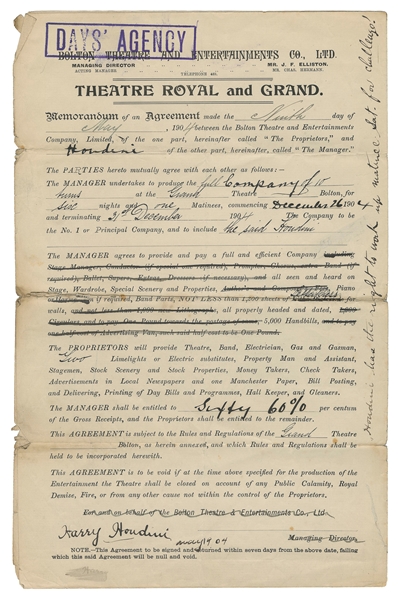 DAYS' AGENCY
BOLTON THEATRE AND ENTERTAINMENTS CO., LTD.
MANAGING DIRECTOR MR. J. F. ELLISTON.
ACTING MANAGER MR. CHAS. HERMANN.
TELEPHONE
THEATRE ROYAL and GRAND.
Memorandum of an Agreement made the Ninth day of
May 1904 between the Bolton Theatre and Entertainments
Company, Limited, of the one part, hereinafter called "The Proprietors," and
Houdini of the other part, hereinafter, called "The Manager."
The PARTIES hereto mutually agree with each other as follows:—
The MANAGER undertakes to produce the full Company of 10
turns at the Grand Theatre Bolton, for
six nights and one Matinee, commencing December 26 1904
and terminating December 1904 The Company to be
the No. 1 or Principal Company, and to include the said Houdini
The MANAGER agrees to provide and pay a full and efficient Company
Stage Manager, Conductor
and all seen and heard on
Stage, Wardrobe, Special Scenery and Properties, Piano
if required, Band Parts, NOT LESS than 1,200 sheets of
walls, and not less than Lithographs, all properly headed and dated,
Circulars, and to pay One Pound towards the postage of same, 5,000 Handbills, and to pay
one-half cost of Advertising Van, such said half cost to be One Pound.
The PROPRIETORS will provide Theatre, Band, Electrician, Gas and Gasman,
Two Limelights or Electric substitutes, Property Man and Assistant,
Stagemen, Stock Scenery and Stock Properties, Money Takers, Check Takers,
Advertisements in Local Newspapers and one Manchester Paper, Bill Posting,
and Delivering, Printing of Day Bills and Programmes, Hall Keeper, and Cleaners.
The MANAGER shall be entitled to Sixty 60% per centum
of the Gross Receipts, and the Proprietors shall be entitled to the remainder.
This AGREEMENT is subject to the Rules and Regulations of the Grand Theatre
Bolton, as herein annexed, and which Rules and Regulations shall be
held to be incorporated herewith.
This AGREEMENT is to be void if at the time above specified for the production of the
Entertainment the Theatre shall be closed on account of any Public Calamity, Royal
Demise, Fire, or from any other cause not within the control of the Proprietors.
For and on behalf of the Bolton Theatre & Entertainments Co., Ltd.
Harry Houdini
Managing Director
NOTE.—This Agreement to be signed and returned within seven days from the above date, failing
which this said Agreement will be null and void.
Houdini has the right to work up matinee Sat. for challenge!